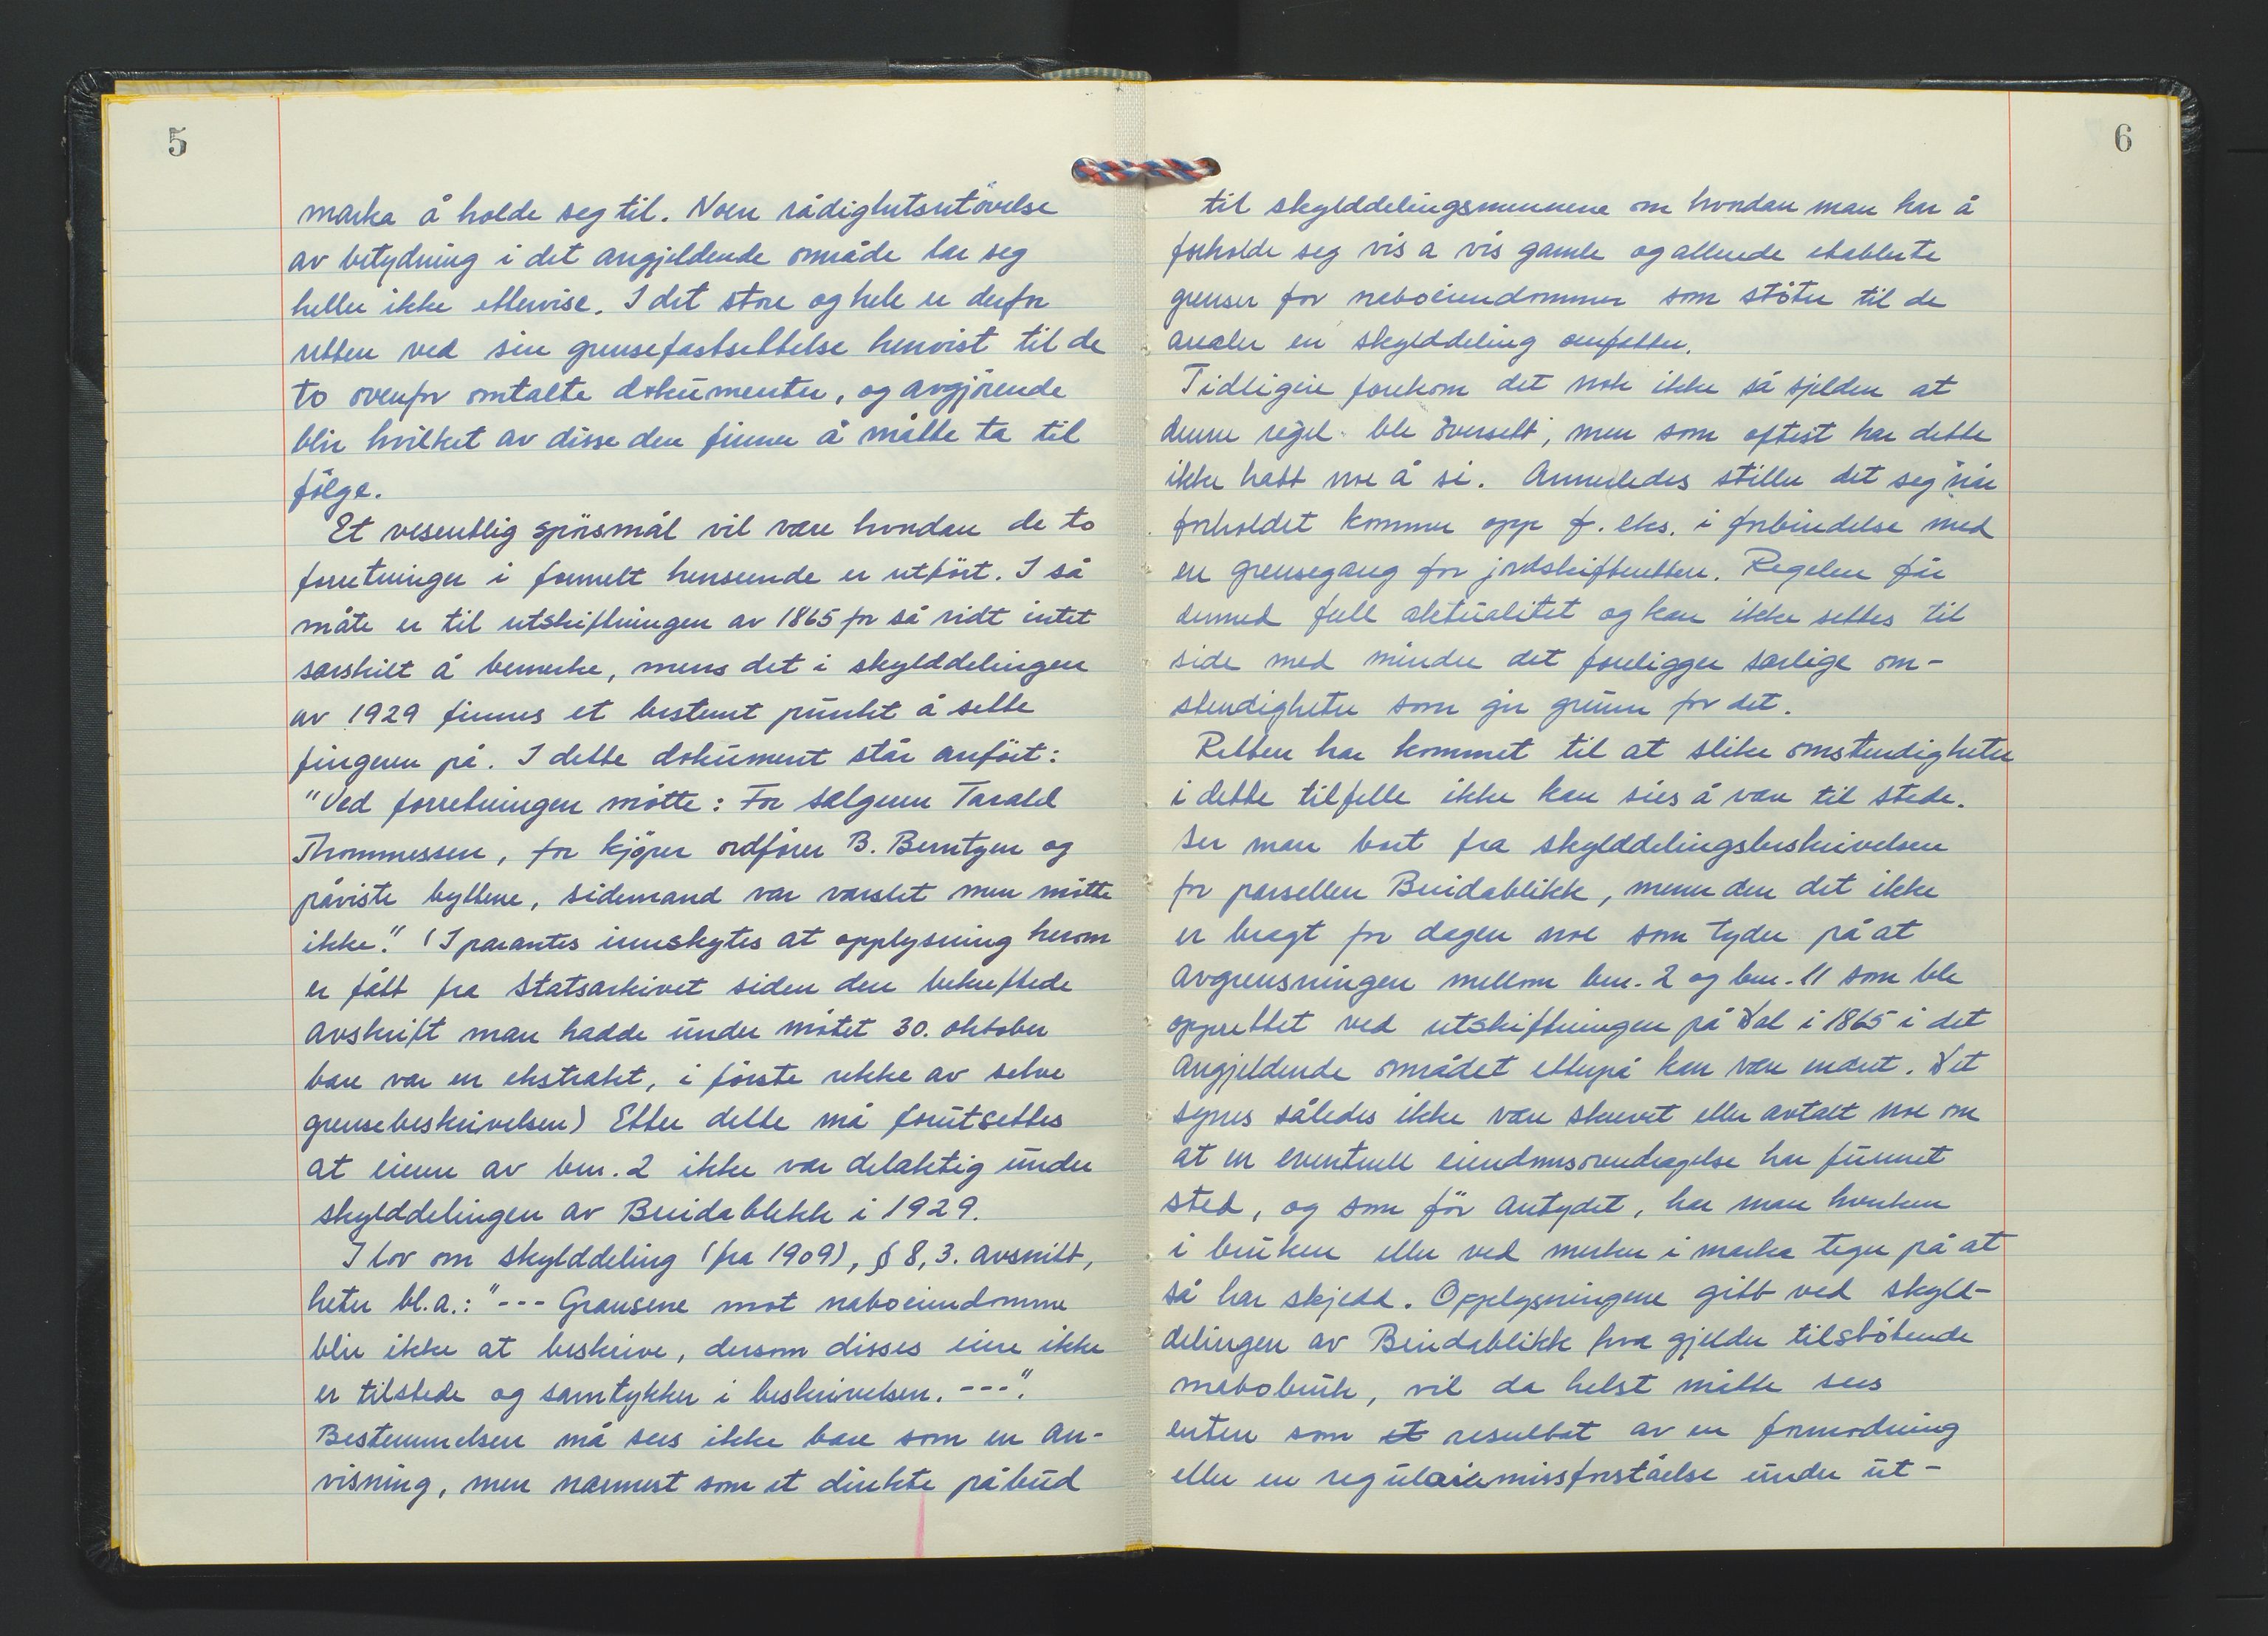 5
marka å holde seg til. Noen rådighetsutövelse
av betydning i det angjeldende område lar seg
heller ikke ettervise. I det store og hele er derfor
retten ved sin grensefastsettelse henvist til de
to ovenfor omtalte dokumenter, og avgjörende
blir hvilket av disse den finner å måtte ta til
fölge.
Et vesentlig spörsmål vil være hvordan de to
forretninger i formelt henseende er utfört. I så
måte er til utskiftningen av 1865 for så vidt intet
særskilt å bemerke, mens det i skylddelingen
av 1929 finnes et bestemt punkt å sette
fingeren på. I dette dokument står anfört:
"Ved forretningen mötte: For sælgeren Tarald
Thommessen, for kjöper ordförer B. Berntzen og
påviste byttene, sidemand var varslet men mötte
ikke." (I parantes innskytes at opplysning herom
er fått fra Statsarkivet siden den bekreftede
avskrift man hadde under mötet 30. oktober
bare var en ekstrakt, i förste rekke av selve
grensebeskrivelsen) Etter dette må forutsettes
at eieren av bnr. 2 ikke var delaktig under
skylddelingen av Breidablikk i 1929.
I lov om skylddeling (fra 1909), § 8, 3. avsnitt,
heter bl.a.: "--- Grænsene mot naboeiendomme
blir ikke at beskrive, dersom disses eiere ikke
er tilstede og samtykker i beskrivelsen. ---".
Bestemmelsen må sees ikke bare som en an-
visning, men nærmest som et direkte påbud
6
til skylddelingsmennene om hvordan man har å
forholde seg vis a vis gamle og allerede etablerte
grenser for naboeiendommer som stöter til de
arealer en skylddeling omfatter.
Tidligere forekom det nok ikke så sjelden at
denne regel ble oversett, men som oftest har dette
ikke hatt noe å si. Annerledes stiller det seg når
forholdet kommer opp f. eks. i forbindelse med
en grensegang for jordskifteretten. Regelen får
dermed full aktualitet og kan ikke settes til
side med mindre det foreligger særlige om-
stendigheter som gir grunn for det.
Retten har kommet til at slike omstendigheter
i dette tilfelle ikke kan sies å være til stede.
Ser man bort fra skylddelingsbeskrivelsen
for parsellen Breidablikk, mener den det ikke
er bragt for dagen noe som tyder på at
avgrensningen mellom bnr. 2 og bnr. 11 som ble
opprettet ved utskiftningen på Dal i 1865 i det
angjeldende området etterpå kan være endret. Det
synes således ikke være skrevet eller avtalt noe om
at en eventuell eiendomsoverdragelse har funnet
sted, og som för antydet, har man hverken
i bruken eller ved merker i marka tegn på at
så har skjedd. Opplysningene gitt ved skyld-
delingen av Breidablikk hva gjelder tilstötende
nabobruk, vil da helst måtte sees
enten som et resultat av en formodning
eller en regulær missforståelse under ut-